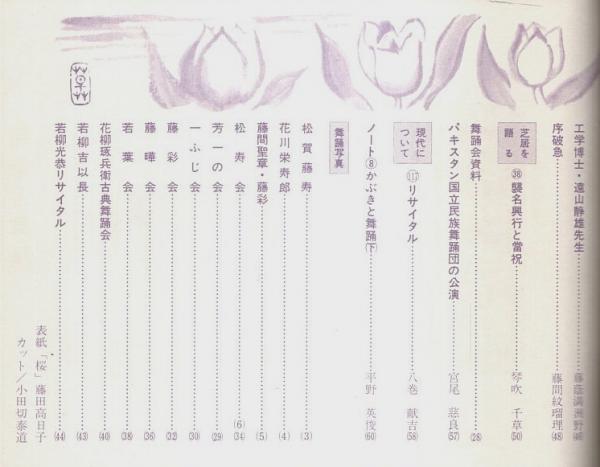 工学博士・遠山静雄先生……藤蔭満洲野(46)
序破急……藤間紋瑠理(48)
芝居を語る ㊳襲名興行と當祝……琴吹千草(50)
舞踊会資料……(28)
パキスタン国立民族舞踊団の公演……宮尾慈良(57)
現代について (117)リサイタル……八巻献吉(58)
ノート⑧かぶきと舞踊(下)……平野英俊(60)
舞踊写真
松賀藤寿……(3)
花川栄寿郎……(4)
藤間聖章・藤彩……(5)
松寿会……(6)(34)
芳一の会……(29)
一ふじ会……(30)
藤彩会……(32)
藤曄会……(36)
若葉会……(38)
花柳琢兵衛古典舞踊会……(40)
若柳吉以長……(43)
若柳光恭リサイタル……(44)
表紙「桜」藤田高日子
カット/小田切泰道